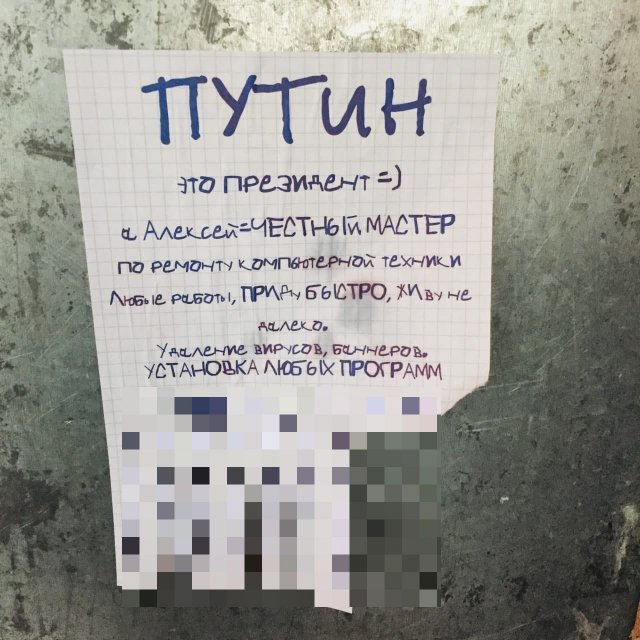 ПУТИН
это президент =)
а Алексей=ЧЕСТНЫЙ МАСТЕР
по ремонту компьютерной техники
Любые работы, ПРИДУ БЫСТРО, живу не
далеко.
Удаление вирусов, баннеров.
УСТАНОВКА ЛЮБЫХ ПРОГРАММ